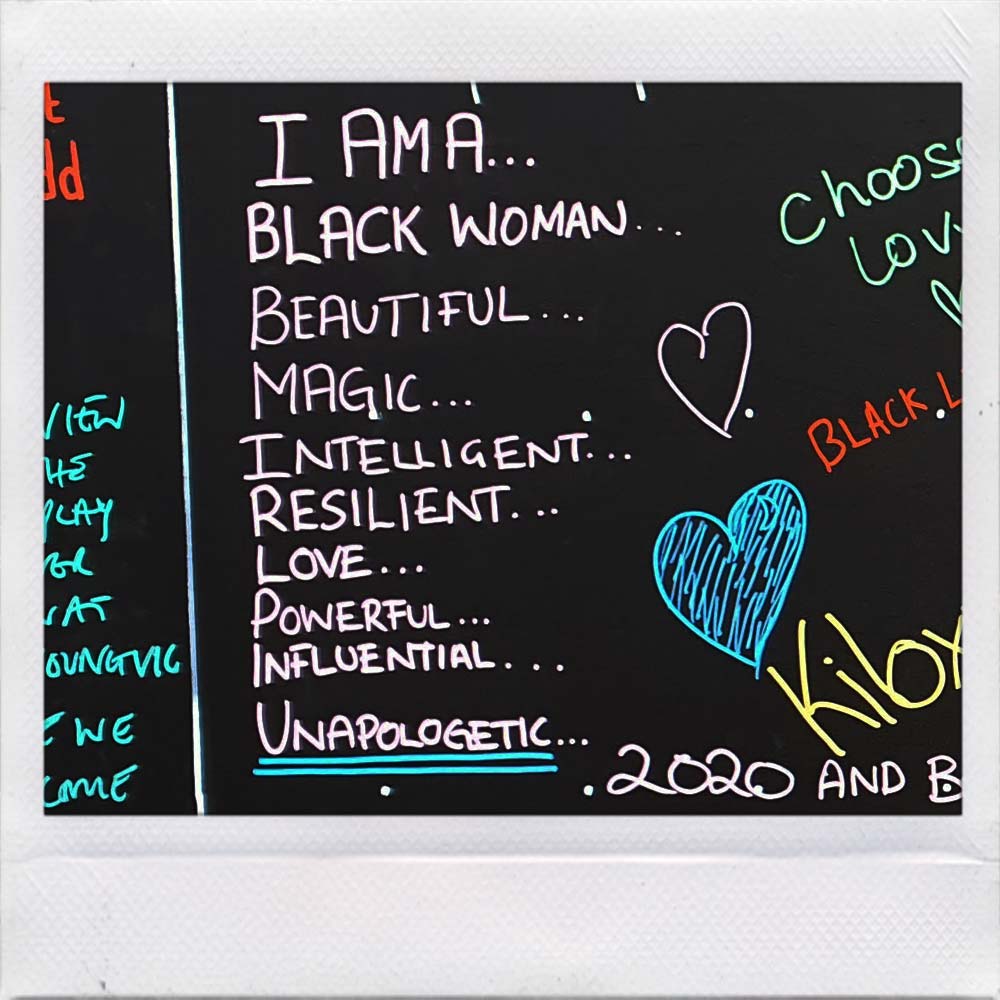 I AM A...
BLACK WOMAN...
BEAUTIFUL...
MAGIC...
INTELLIGENT...
RESILIENT...
LOVE...
POWERFUL...
INFLUENTIAL...
UNAPOLOGETIC...
2020 AND B
Choose
Lov
BLACK L
Kilo
dd
VIEW
HE
PLAY
ER
AT
OUNGVIC
E WE
COME